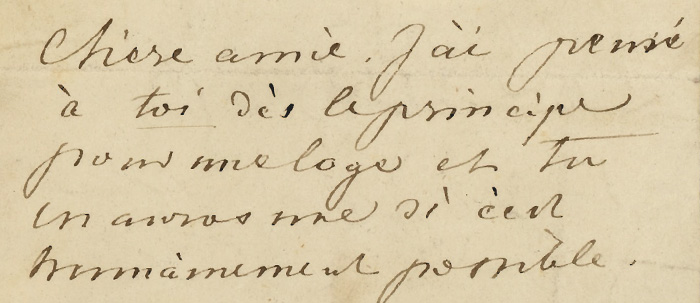 Chère amie. J'ai pensé
à toi dès le principe
pour une loge et tu
en auras une si c'est
humainement possible.